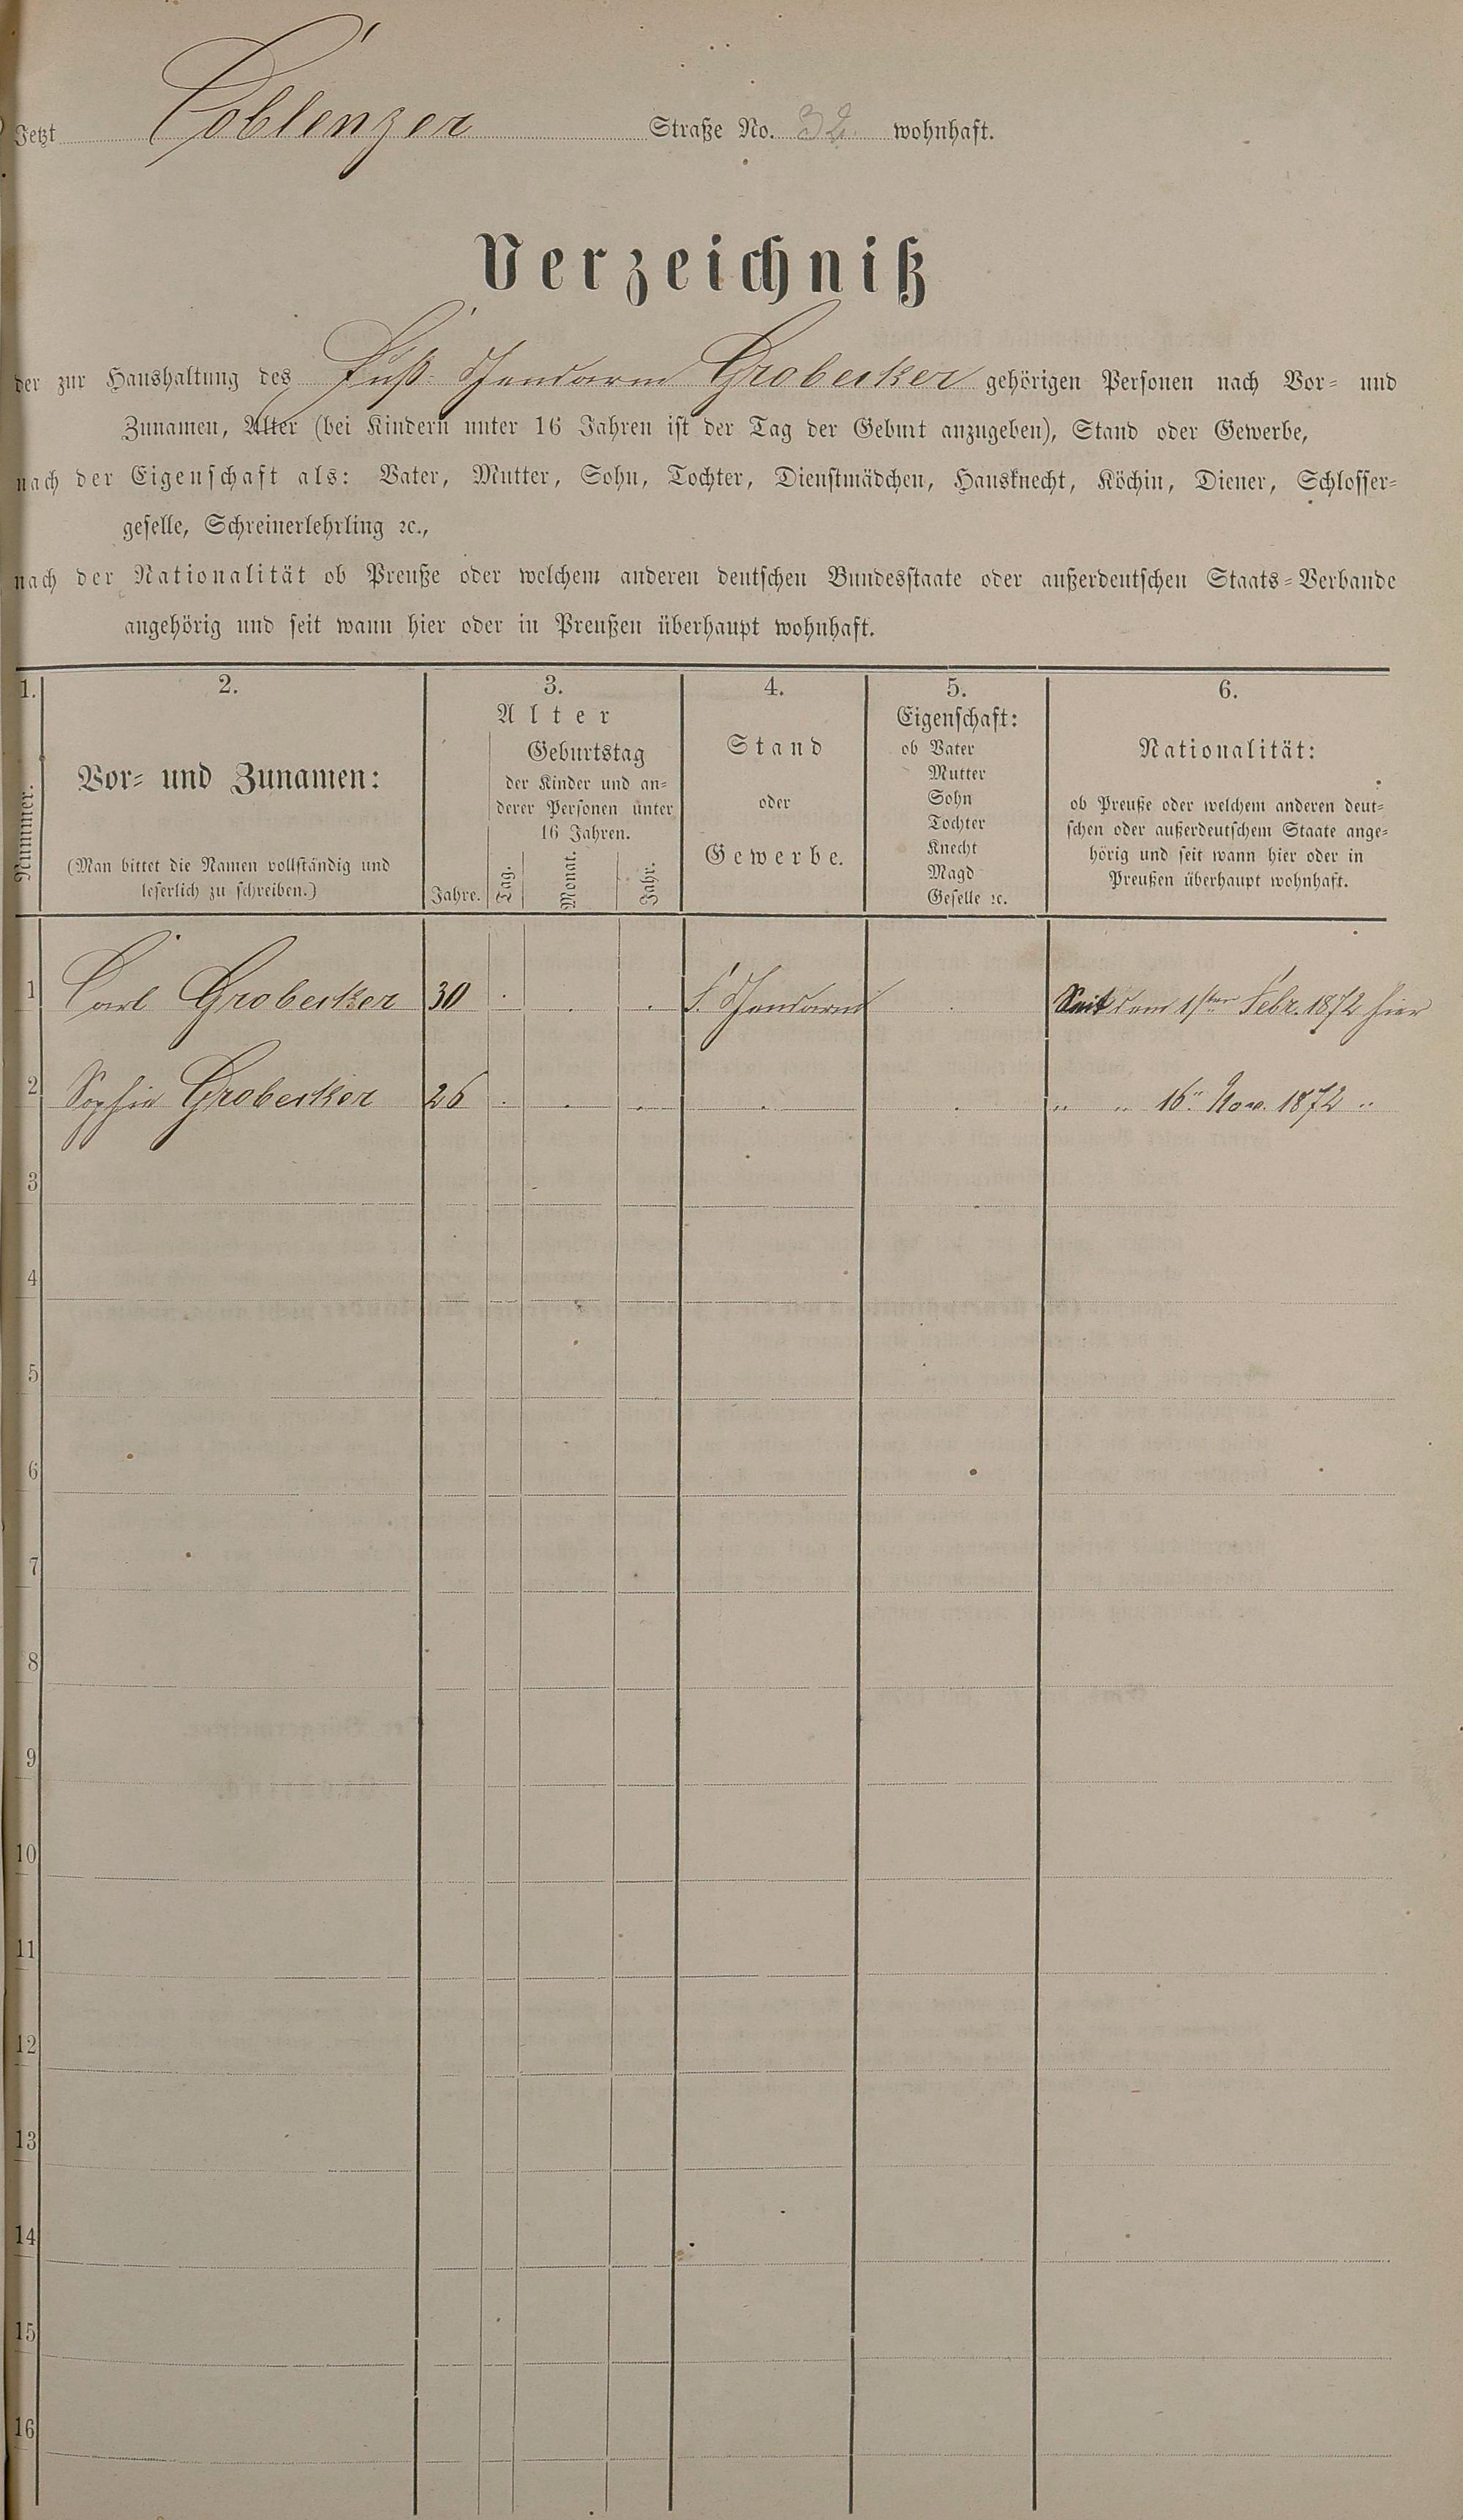 Jetzt Coblenzer Straße No. 32. wohnhaft.
Verzeichniß
der zur Haushaltung des Fuß. Gendarm Grobecker gehörigen Personen nach Vor- und
Zunamen, Alter (bei Kindern unter 16 Jahren ist der Tag der Geburt anzugeben), Stand oder Gewerbe,
nach der Eigenschaft als: Vater, Mutter, Sohn, Tochter, Dienstmädchen, Hausknecht, Köchin, Diener, Schlosser-
geselle, Schreinerlehrling ꝛc.,
nach der Nationalität ob Preuße oder welchem anderen deutschen Bundesstaate oder außerdeutschen Staats-Verbande
angehörig und seit wann hier oder in Preußen überhaupt wohnhaft.
1. 2. 3. 4. 5. 6.
Nummer.
Vor- und Zunamen:
(Man bittet die Namen vollständig und
leserlich zu schreiben.)
Alter
Jahre.
Geburtstag
der Kinder und an-
derer Personen unter
16 Jahren.
Tag. Monat. Jahr.
Stand
oder
Gewerbe.
Eigenschaft:
ob Vater
Mutter
Sohn
Tochter
Knecht
Magd
Geselle ꝛc.
Nationalität:
ob Preuße oder welchem anderen deut-
schen oder außerdeutschem Staate ange-
hörig und seit wann hier oder in
Preußen überhaupt wohnhaft.
1 Carl Grobecker 30 F. Gendarm Seit dem 1sten Febr. 1872 hier
2 Sophie Grobecker 26 " " 16" Nov. 1872 "
3
4
5
6
7
8
9
10
11
12
13
14
15
16